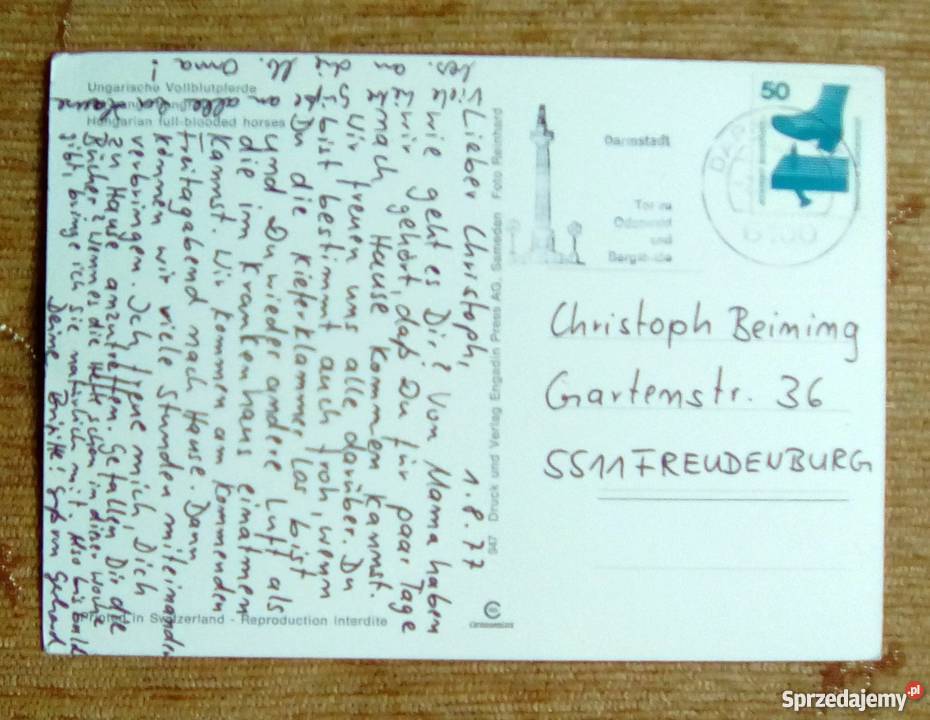 1.8.77
Lieber Christoph,
wie geht es Dir? Von Mama haben
wir gehört, daß Du für paar Tage
nach Hause kommen kannst.
Wir freuen uns alle darüber. Du
bist bestimmt auch froh, wenn
Du die Kieferklammer los bist
und Du wieder andere Luft als
die im Krankenhaus einatmen
kannst. Wir kommen am kommenden
Freitagabend nach Hause. Dann
können wir viele Stunden miteinander
verbringen. Ich freue mich, Dich
zu Hause anzutreffen. Gefallen Dir die
Bücher? Wenn es die Hefte schon in dieser Woche
gibt, bringe ich sie natürlich mit. Also bis bald
Deine Brigitte! Gruß von Gerhard
Viele
an
alle
bes. an
Oma
Ungarische Vollblutpferde
Hungarian full-blooded horses
Printed in Switzerland - Reproduction interdite
947 Druck und Verlag Engadin Press AG. Samedan Foto Reinhard
Darmstadt
Tor zu
Odenwald
und
Bergstraße
50
Christoph Beiming
Gartenstr. 36
5511 FREUDENBURG
Sprzedajemy.pl